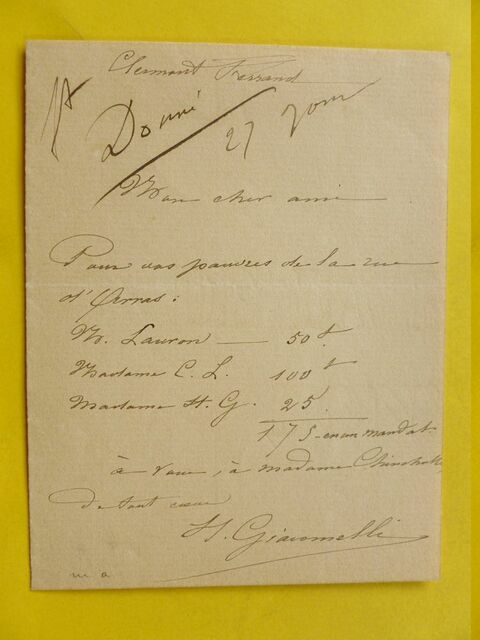 Clermont Ferrand
Donné
27
Mon cher ami
Pour vos pauvres de la rue
d'Arras :
M. Lauron — 50 f.
Madame C. L. 100 f
Madame H. G. 25
175 - en un mandat.
à vous, à madame
de tout cœur
H. Giacomelli